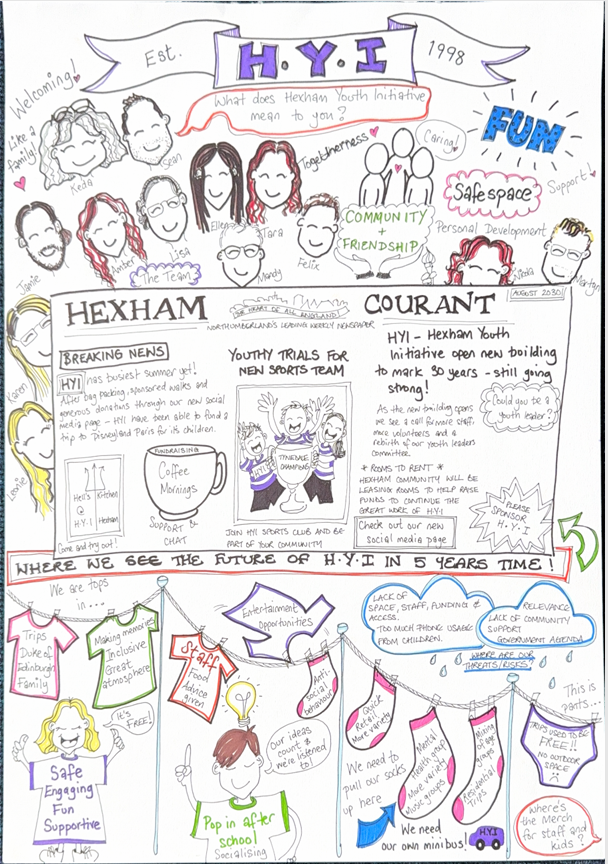 Est.
H.Y.I
1998
Welcoming!
Like a
family!
What does Hexham Youth Initiative
mean to you?
Togetherness
Caring!
FUN
Safe space
Support!
Keda
Sean
Ellen
Tara
Jamie
Amber
Lisa
The Team
Mandy
Felix
COMMUNITY
+
FRIENDSHIP
Personal Development
Nicola
Martyn
Karen
Leonie
HEXHAM
THE HEART OF ALL ENGLAND
COURANT
AUGUST 2030
NORTHUMBERLAND'S LEADING WEEKLY NEWSPAPER
BREAKING NEWS
HYI has busiest summer yet!
After bag packing, sponsored walks and
generous donations through our new social
media page - HYI have been able to fund a
trip to Disneyland Paris for its children.
Hell's Kitchen
@
H.Y.I Hexham
Come and try out!
FUNDRAISING
Coffee
Mornings
SUPPORT &
CHAT
YOUTHY TRIALS FOR
NEW SPORTS TEAM
HYI
TYNEDALE
CHAMPIONS
JOIN HYI SPORTS CLUB AND BE
PART OF YOUR COMMUNITY
HYI - Hexham Youth
Initiative open new building
to mark 30 years - still going
strong!
As the new building opens
we see a call for more staff,
more volunteers and a
rebirth of our youth leaders
committee.
Could you be a
youth leader?
* ROOMS TO RENT *
HEXHAM COMMUNITY WILL BE
LEASING ROOMS TO HELP RAISE
FUNDS TO CONTINUE THE
GREAT WORK OF H.Y.I
Check out our new
social media page
PLEASE
SPONSOR
H.Y.I
WHERE WE SEE THE FUTURE OF H.Y.I IN 5 YEARS TIME!
We are tops
in....
Trips
Duke of
Edinburgh
Family
Making memories
Inclusive
Great
atmosphere
Staff
Food
Advice
given
Entertainment
opportunities
Anti-
social
behaviour
LACK OF
SPACE, STAFF, FUNDING &
ACCESS.
TOO MUCH PHONE USAGE
FROM CHILDREN.
RELEVANCE
LACK OF COMMUNITY
SUPPORT
GOVERNMENT AGENDA
WHERE ARE OUR
THREATS/RISKS?
Quick
Retail
More variety
Mental
Health group
More variety
Music groups
Mixing
of age
groups
Residential
Trips
This is
pants...
TRIPS USED TO BE
FREE!!
NO OUTDOOR
SPACE
It's
FREE!
Safe
Engaging
Fun
Supportive
Our ideas
count &
we're listened
to!
Pop in after
school
Socialising
We need to
pull our socks
up here
We need
our own minibus!
H.Y.I
Where's
the Merch
for staff and
kids?